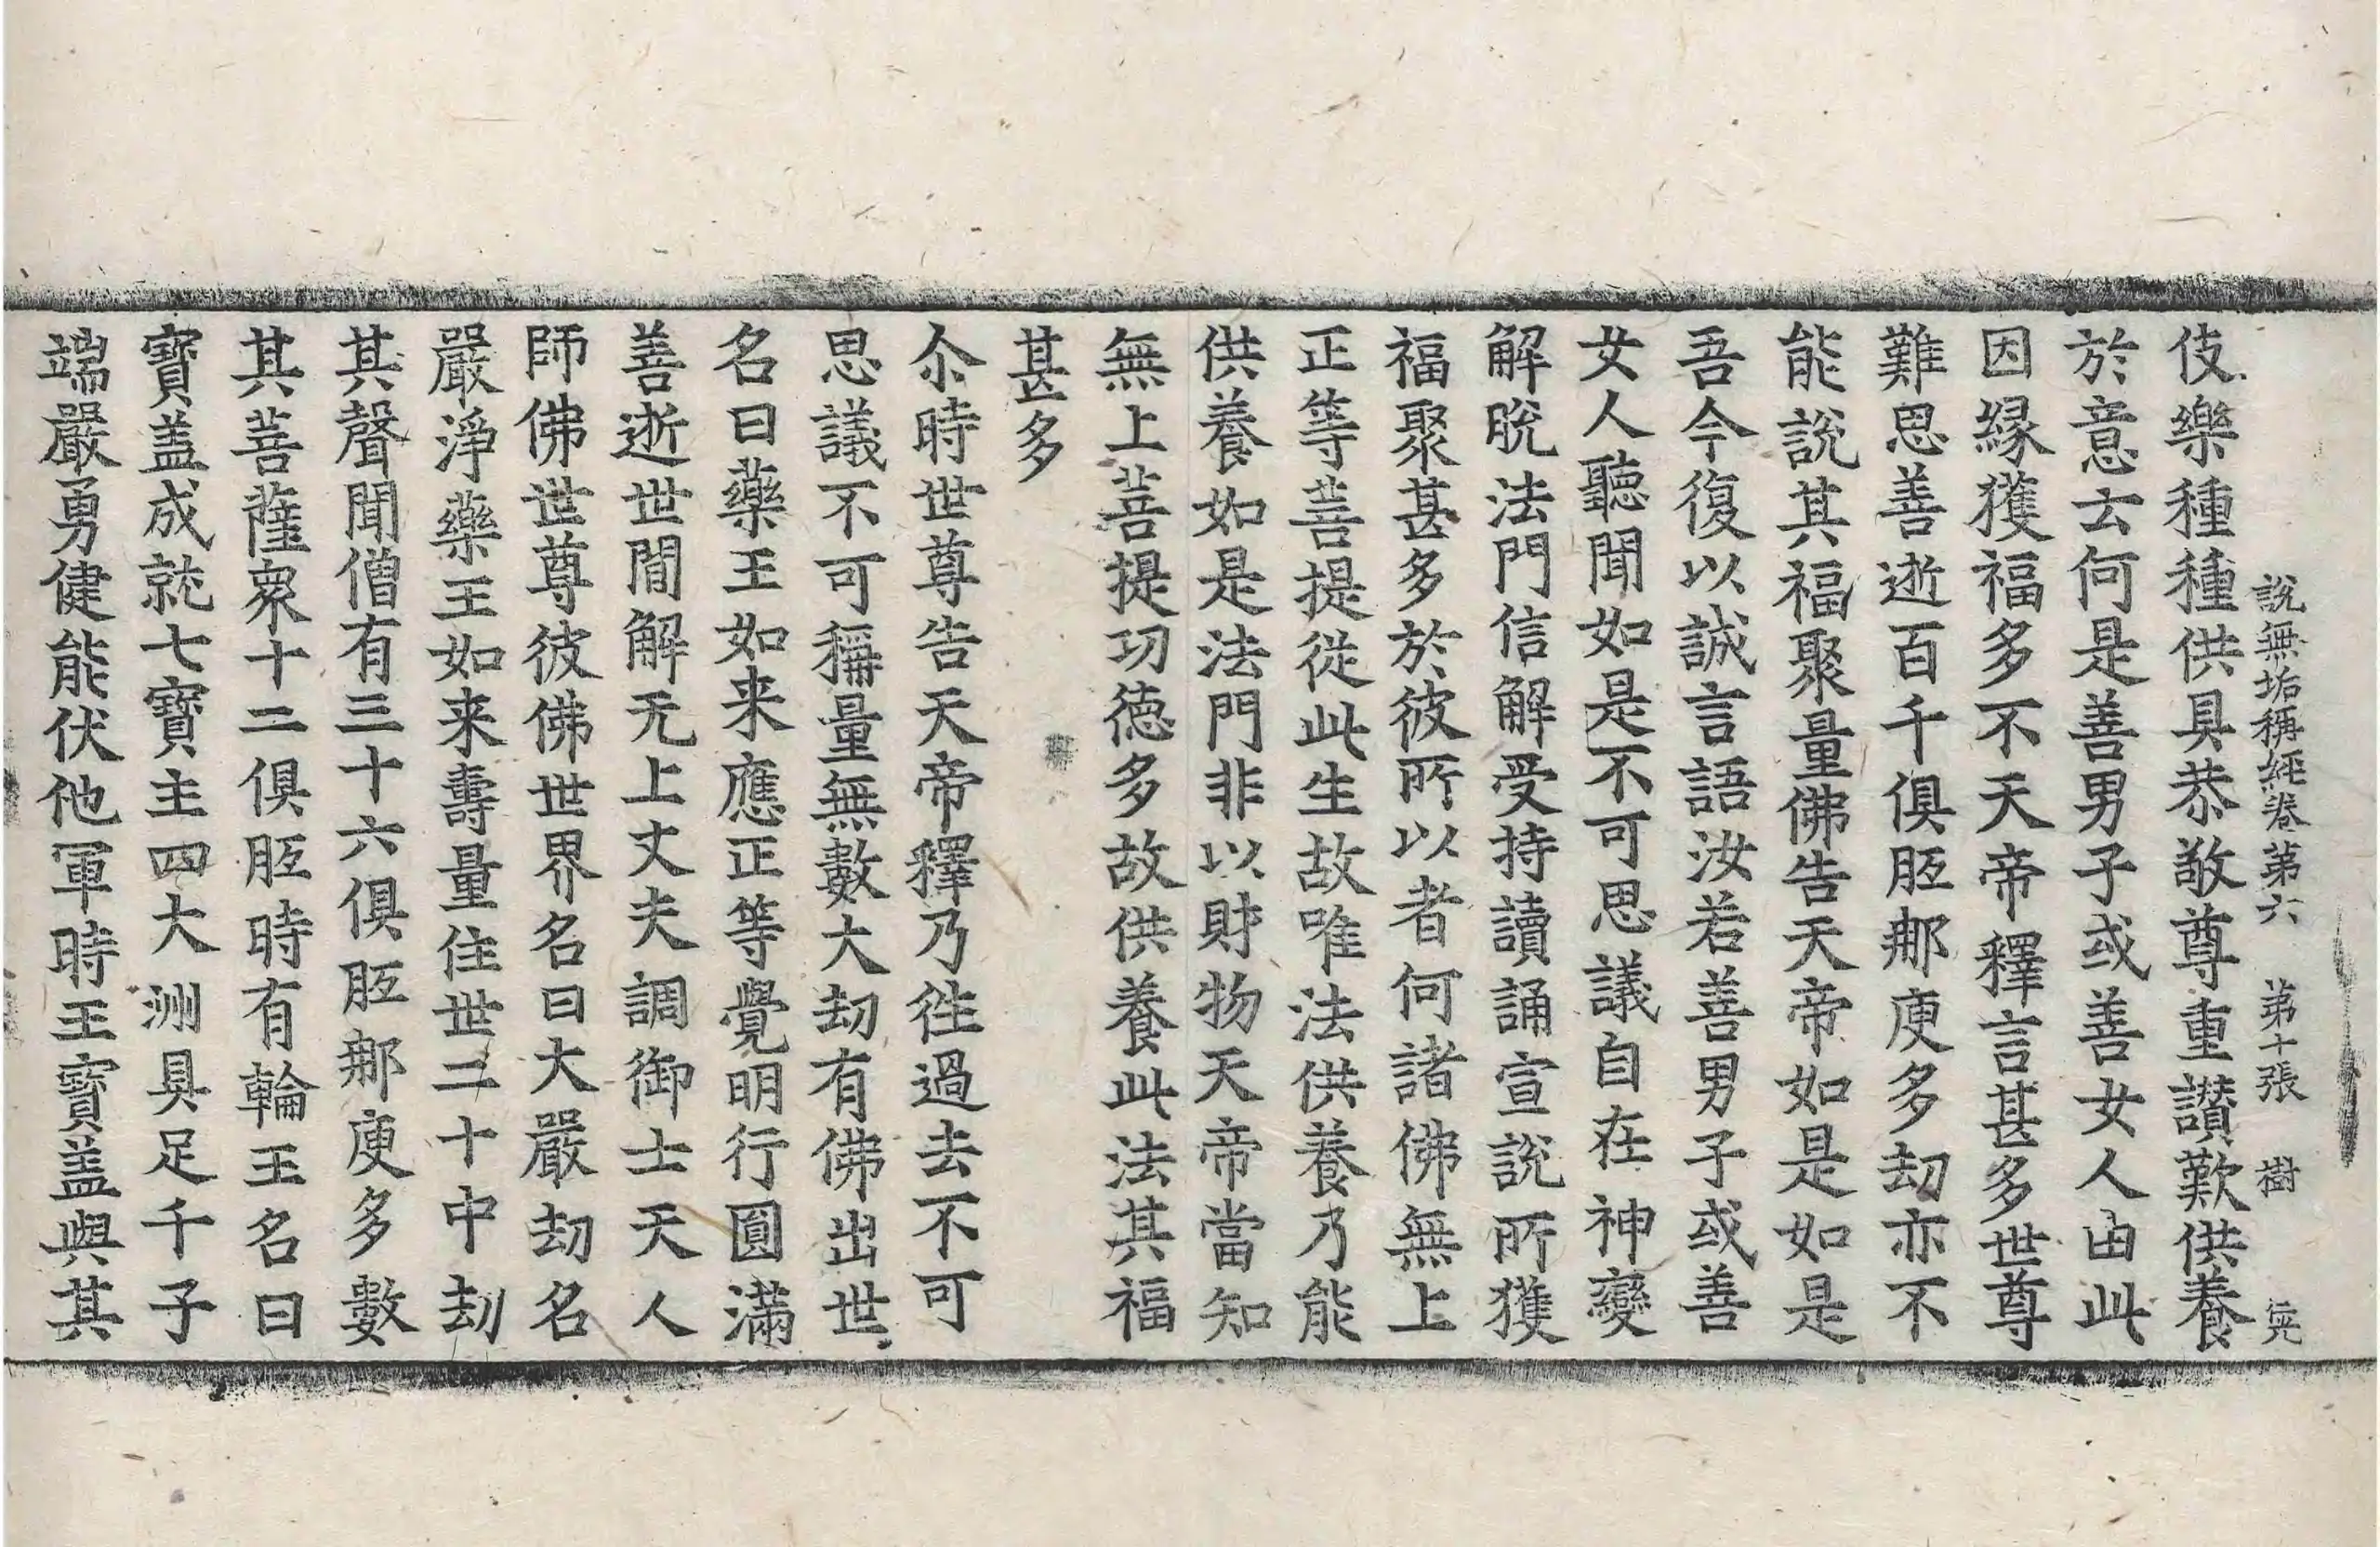 說無垢稱經卷第六 第十張 樹
伎樂種種供具恭敬尊重讚歎供養
於意云何是善男子或善女人由此
因緣獲福多不天帝釋言甚多世尊
難思善逝百千俱胝那庾多劫亦不
能說其福聚量佛告天帝如是如是
吾今復以誠言語汝若善男子或善
女人聽聞如是不可思議自在神變
解脫法門信解受持讀誦宣說所獲
福聚甚多於彼所以者何諸佛無上
正等菩提從此生故唯法供養乃能
供養如是法門非以財物天帝當知
無上菩提功德多故供養此法其福
甚多
尒時世尊告天帝釋乃往過去不可
思議不可稱量無數大劫有佛出世
名曰藥王如来應正等覺明行圓滿
善逝世間解无上丈夫調御士天人
師佛世尊彼佛世界名曰大嚴劫名
嚴淨藥王如来壽量住世二十中劫
其聲聞僧有三十六俱胝那庾多數
其菩薩眾十二俱胝時有輪王名曰
寶盖成就七寶主四大洲具足千子
端嚴勇健能伏他軍時王寶盖與其